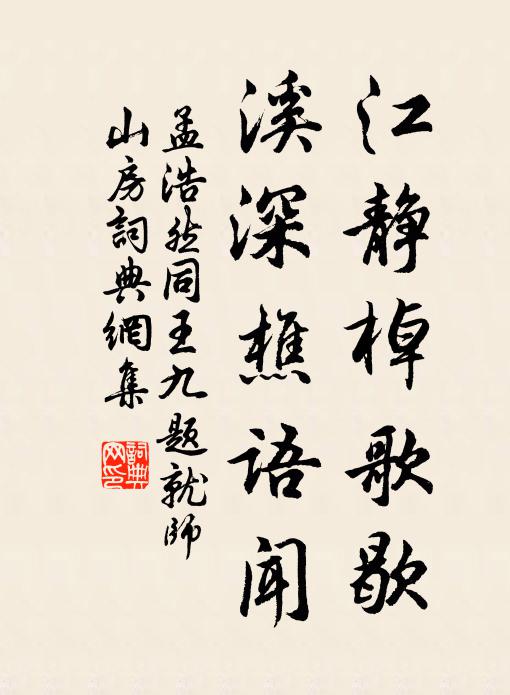 江静棹歌歇
溪深樵语闻
孟浩然同王九题就师
山房詞典網集
詞典网印